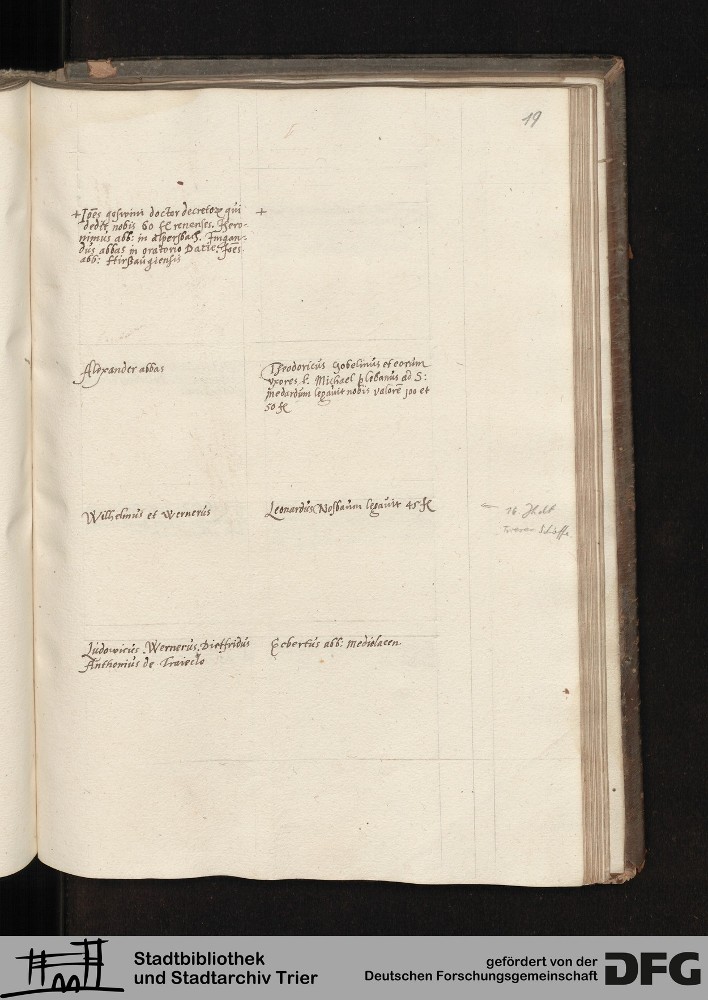 19
+ Joēs goswini doctor decretoꝝ qui +
dedit nobis 60 fl renenses. Hero-
nimus abb: in alpersbach.
dus abbas in oratorio Datie. Joēs
abb: Hirßaugiensis
Alexander abbas
Theodoricus Gobelinus et eorum
vxores l. Michael plebanus ad S:
medardum legauit nobis valorē 100 et
50 fl
Wilhelmus et Wernerus
Leonardus Nosbaum legauit 45 fl
16
Ludowicus. Wernerus. Dietfridus
Anthonius de Traiecto
Ecbertus abb: mediolacen
Stadtbibliothek
und Stadtarchiv Trier
gefördert von der
Deutschen Forschungsgemeinschaft
DFG